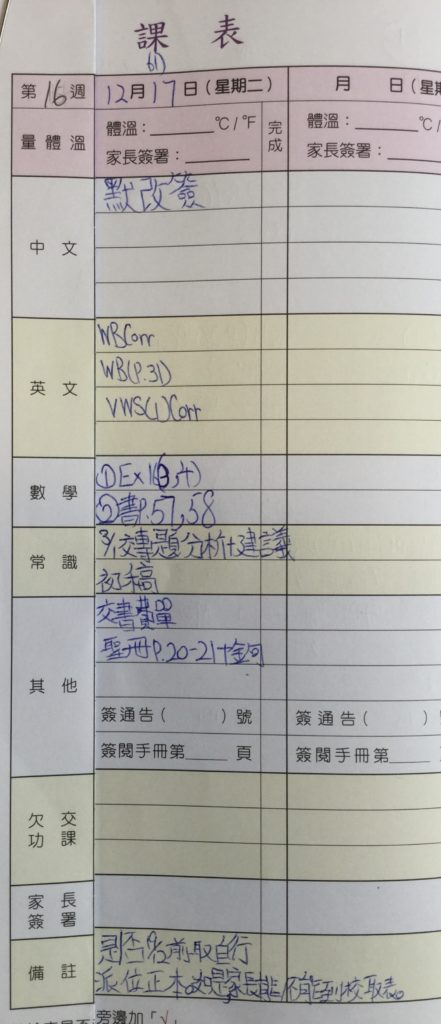 課表
(6)
第16週 12月17日(星期二) 月 日(星期
量體溫 體溫:______℃/℉ 完成 體溫:______℃
家長簽署:______ 家長簽署:______
中文 默改簽
英文 WBCorr
WB(P.31)
VWS(1)Corr
數學 ①Ex
②書P.57,58
常識 交專題分析+建議
初稿
其他 交書費單
聖冊P.20-21+金句
簽通告( )號 簽通告(
簽閱手冊第____頁 簽閱手冊第____
欠交功課
家長簽署
備註 前取自行
派位正本 家長 不能到校取表。
旁邊加「✓」